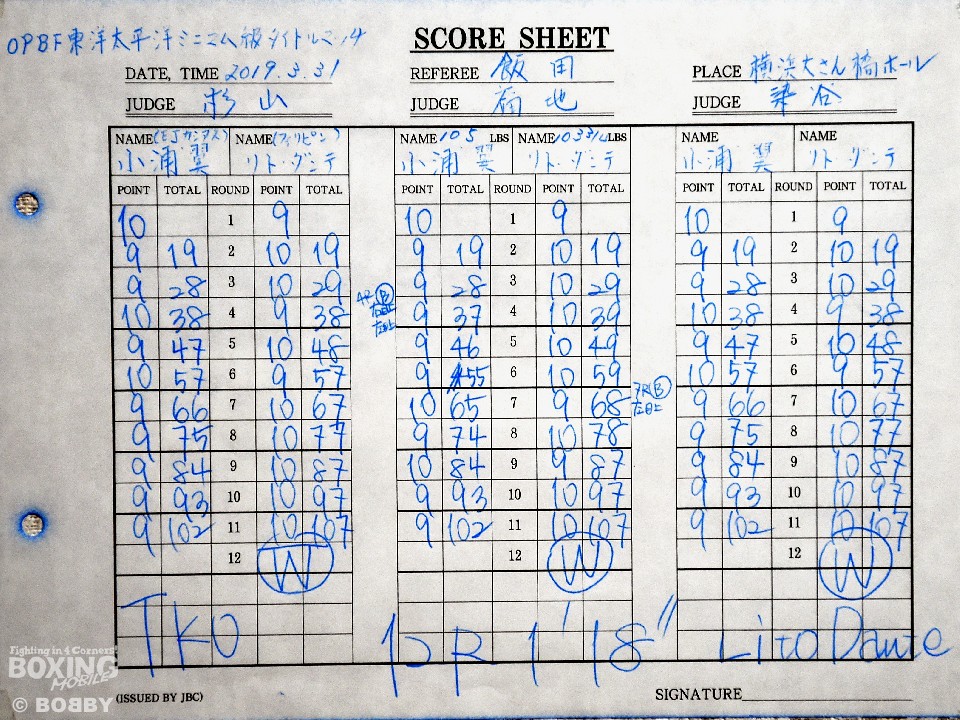 SCORE SHEET
OPBF東洋太平洋ミニマム級タイトルマッチ
DATE, TIME 2019.3.31
REFEREE 飯田
PLACE 横浜大さん橋ホール
JUDGE 杉山
JUDGE 福地
JUDGE 染谷
NAME(EJカシアス) NAME(フィリピン) NAME 105 LBS NAME 103 3/4 LBS NAME NAME
小浦翼 リト・ダンテ 小浦翼 リト・ダンテ 小浦翼 リト・ダンテ
POINT TOTAL ROUND POINT TOTAL POINT TOTAL ROUND POINT TOTAL POINT TOTAL ROUND POINT TOTAL
10 1 9 10 1 9 10 1 9
9 19 2 10 19 9 19 2 10 19 9 19 2 10 19
9 28 3 10 29 9 28 3 10 29 9 28 3 10 29
10 38 4 9 38 4R B 9 37 4 10 39 10 38 4 9 38
9 47 5 10 48 9 46 5 10 49 9 47 5 10 48
10 57 6 9 57 9 55 6 10 59 10 57 6 9 57
9 66 7 10 67 10 65 7 9 68 7R B 9 66 7 10 67
9 75 8 10 77 9 74 8 10 78 9 75 8 10 77
9 84 9 10 87 10 84 9 9 87 9 84 9 10 87
9 93 10 10 97 9 93 10 10 97 9 93 10 10 97
9 102 11 10 107 9 102 11 10 107 9 102 11 10 107
12 W 12 W 12 W
TKO 12R 1'18" Lito Dante
Fighting in 4 Corners!
BOXING
MOBILE
© BOBBY
(ISSUED BY JBC)
SIGNATURE